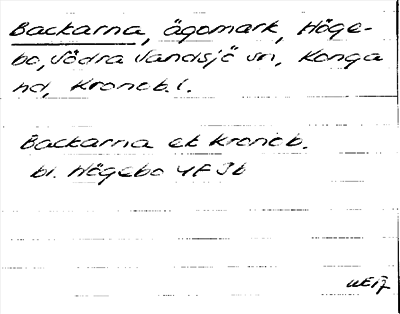 Backarna, ägomark, Höge-
bo, Södra Sandsjö sn, Konga
hd, Kronob. l.
Backarna ek Kronob.
bl. Högebo 4F Jb